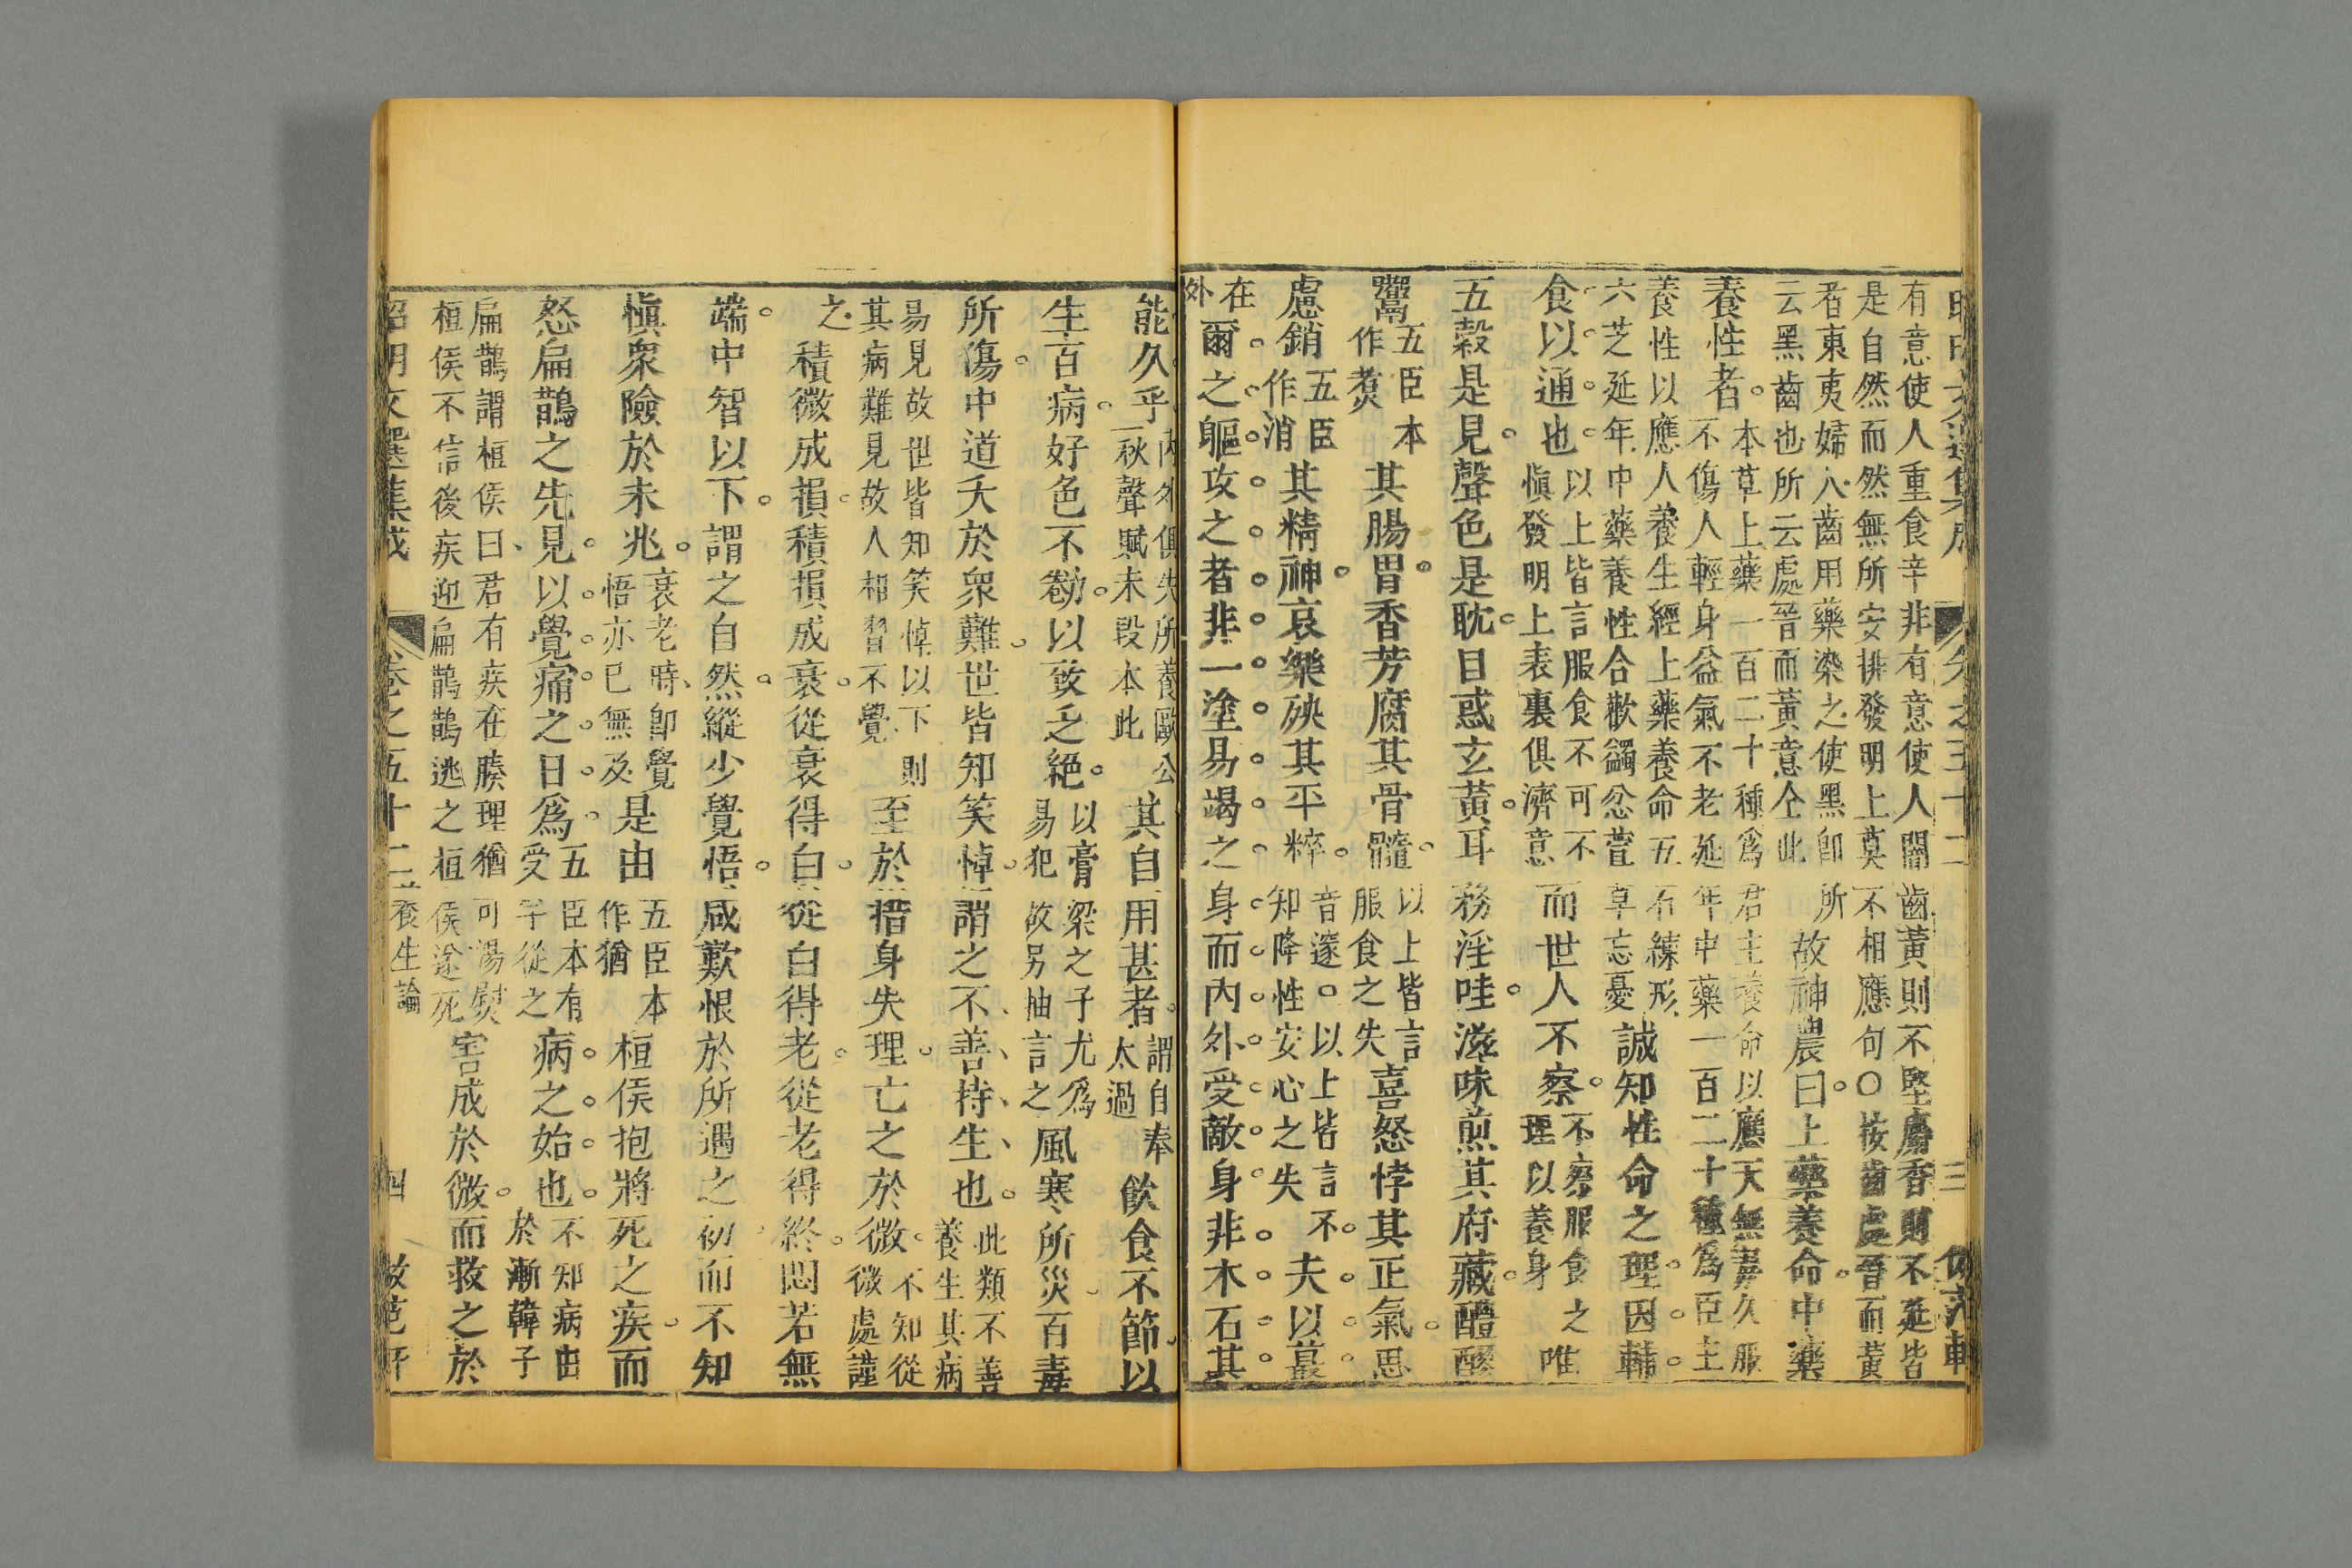 有意使人重食辛非有意使人闇齒黃則不堅麝香則不延皆
是自然而然無所安排發明上莫不相應句〇按齒處晉而黃
者東夷婦人齒用藥染之使黑卽所
云黑齒也所云處晉而黃意仝此
故神農曰上藥養命中藥
養性者
本草上藥一百二十種爲君主養命以應天無毒久服
不傷人輕身益氣不老延年中藥一百二十種爲臣主
養性以應人養生經上藥養命五石練形
六芝延年中藥養性合歡蠲忿萱草忘憂
誠知性命之理因輔
食以通也
以上皆言服食不可不
愼發明上表裏俱濟意
而世人不察
不察服食之
理以養身
唯
五穀是見聲色是耽目惑玄黃耳務淫哇滋味煎其府藏醴醪
鬻
五臣本
作煑
其腸胃香芳腐其骨髓
以上皆言
服食之失
喜怒悖其正氣思
慮銷
五臣
作消
其精神哀樂殃其平粹
音邃〇以上皆言不
知降性安心之失
夫以蕞
在
外
爾之軀攻之者非一塗易竭之身而內外受敵身非木石其
能久乎
內外俱失所養歐公
秋聲賦末段本此
其自用甚者
謂自奉
太過
飲食不節以
生百病好色不勌以致乏絶
以膏粱之子尤爲
易犯故另抽言之
風寒所災百毒
所傷中道夭於衆難世皆知笑悼謂之不善持生也
此類不善
養生其病
易見故世皆知笑悼以下則
其病難見故人相習不覺
至於措身失理亡之於微
不知從
微處謹
之
積微成損積損成衰從衰得白從白得老從老得終悶若無
端中智以下謂之自然縱少覺悟咸歎恨於所遇之初而不知
愼衆險於未兆
衰老時卽覺
悟亦已無及
是由
五臣本
作猶
桓侯抱將死之疾而
怒扁鵲之先見以覺痛之日爲
五臣本有
受字從之
病之始也
不知病由
於漸韓子
扁鵲謂桓侯曰君有疾在腠理猶可湯熨
桓侯不信後疾迎扁鵲鵲逃之桓侯遂死
害成於微而救之於
昭明文選集成
卷之五十二
養生論
四